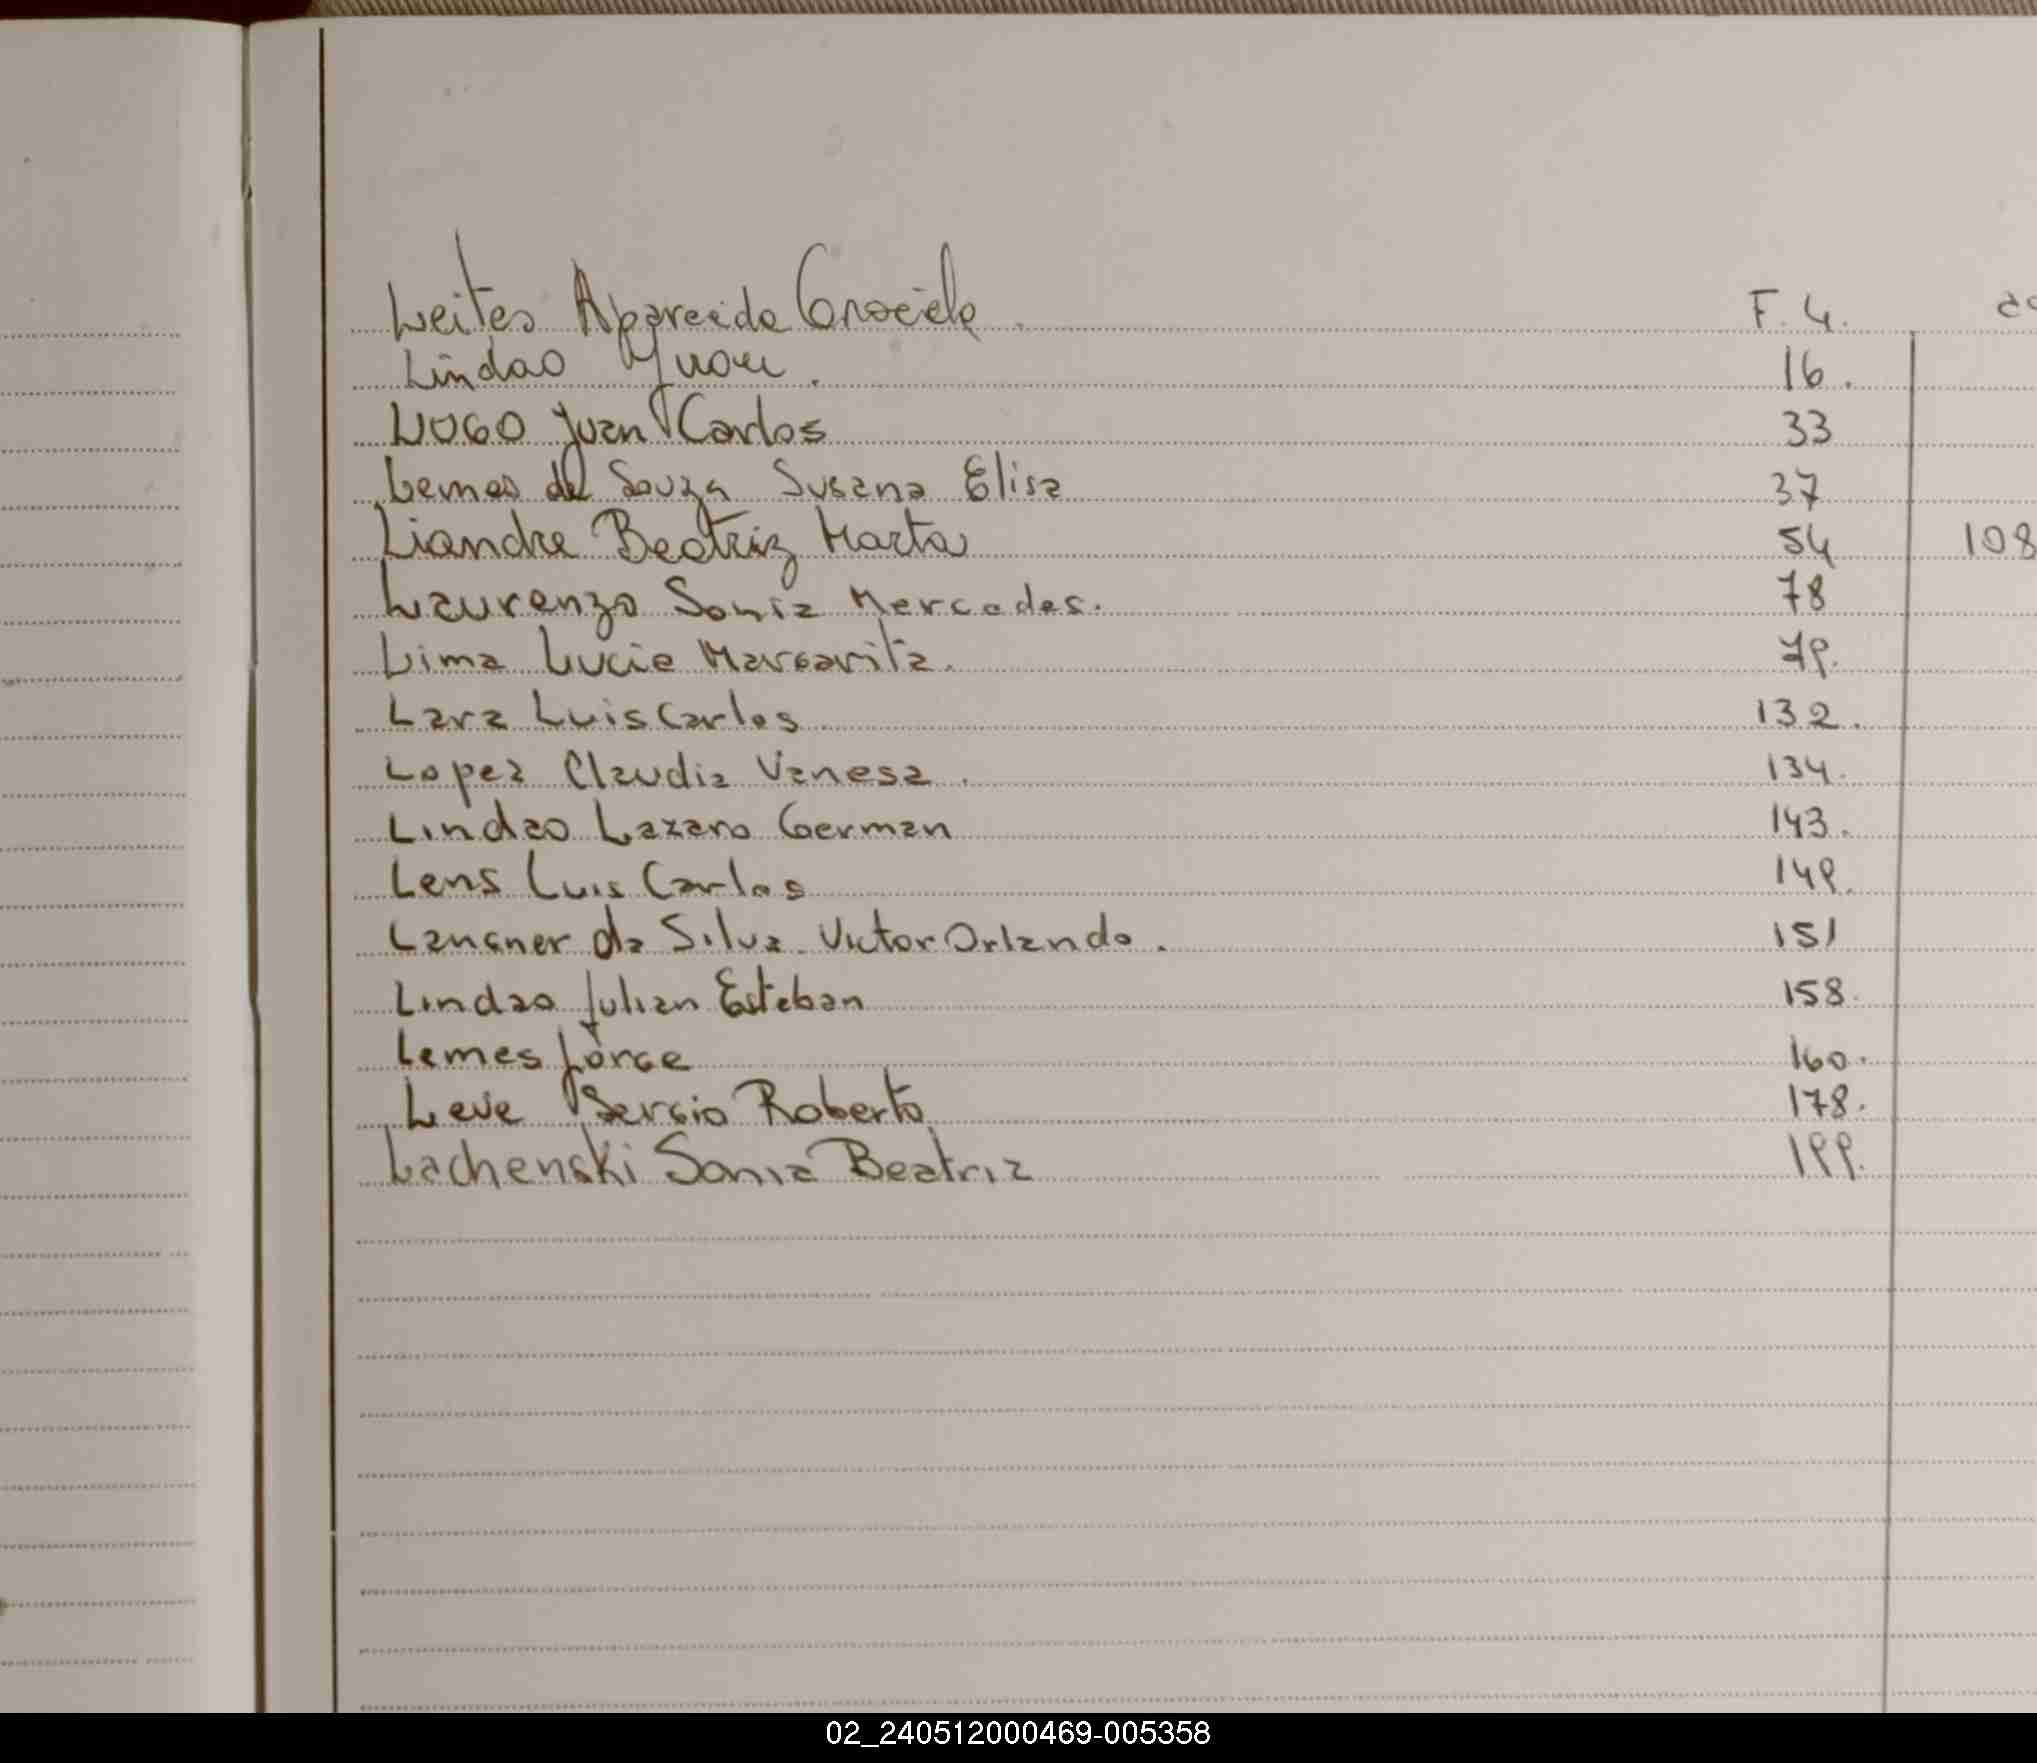 Leites Aparecida Graciela F. 4.
Lindao Juan. 16.
LUGO Juan Carlos 33
Lemes de Souza Susana Elisa 37
Liandre Beatriz Marta 54 108
Laurenzo Sonia Mercedes. 78
Lima Lucia Margarita. 79.
Lara Luis Carlos 132.
Lopez Claudia Vanesa. 134.
Lindao Lazaro German 143.
Lens Luis Carlos 149.
Langner da Silva Victor Orlando. 151
Lindao Julian Esteban 158.
Lemes Jorge 160.
Leve Sergio Roberto 178.
Lachenski Sonia Beatriz 199.
02_240512000469-005358